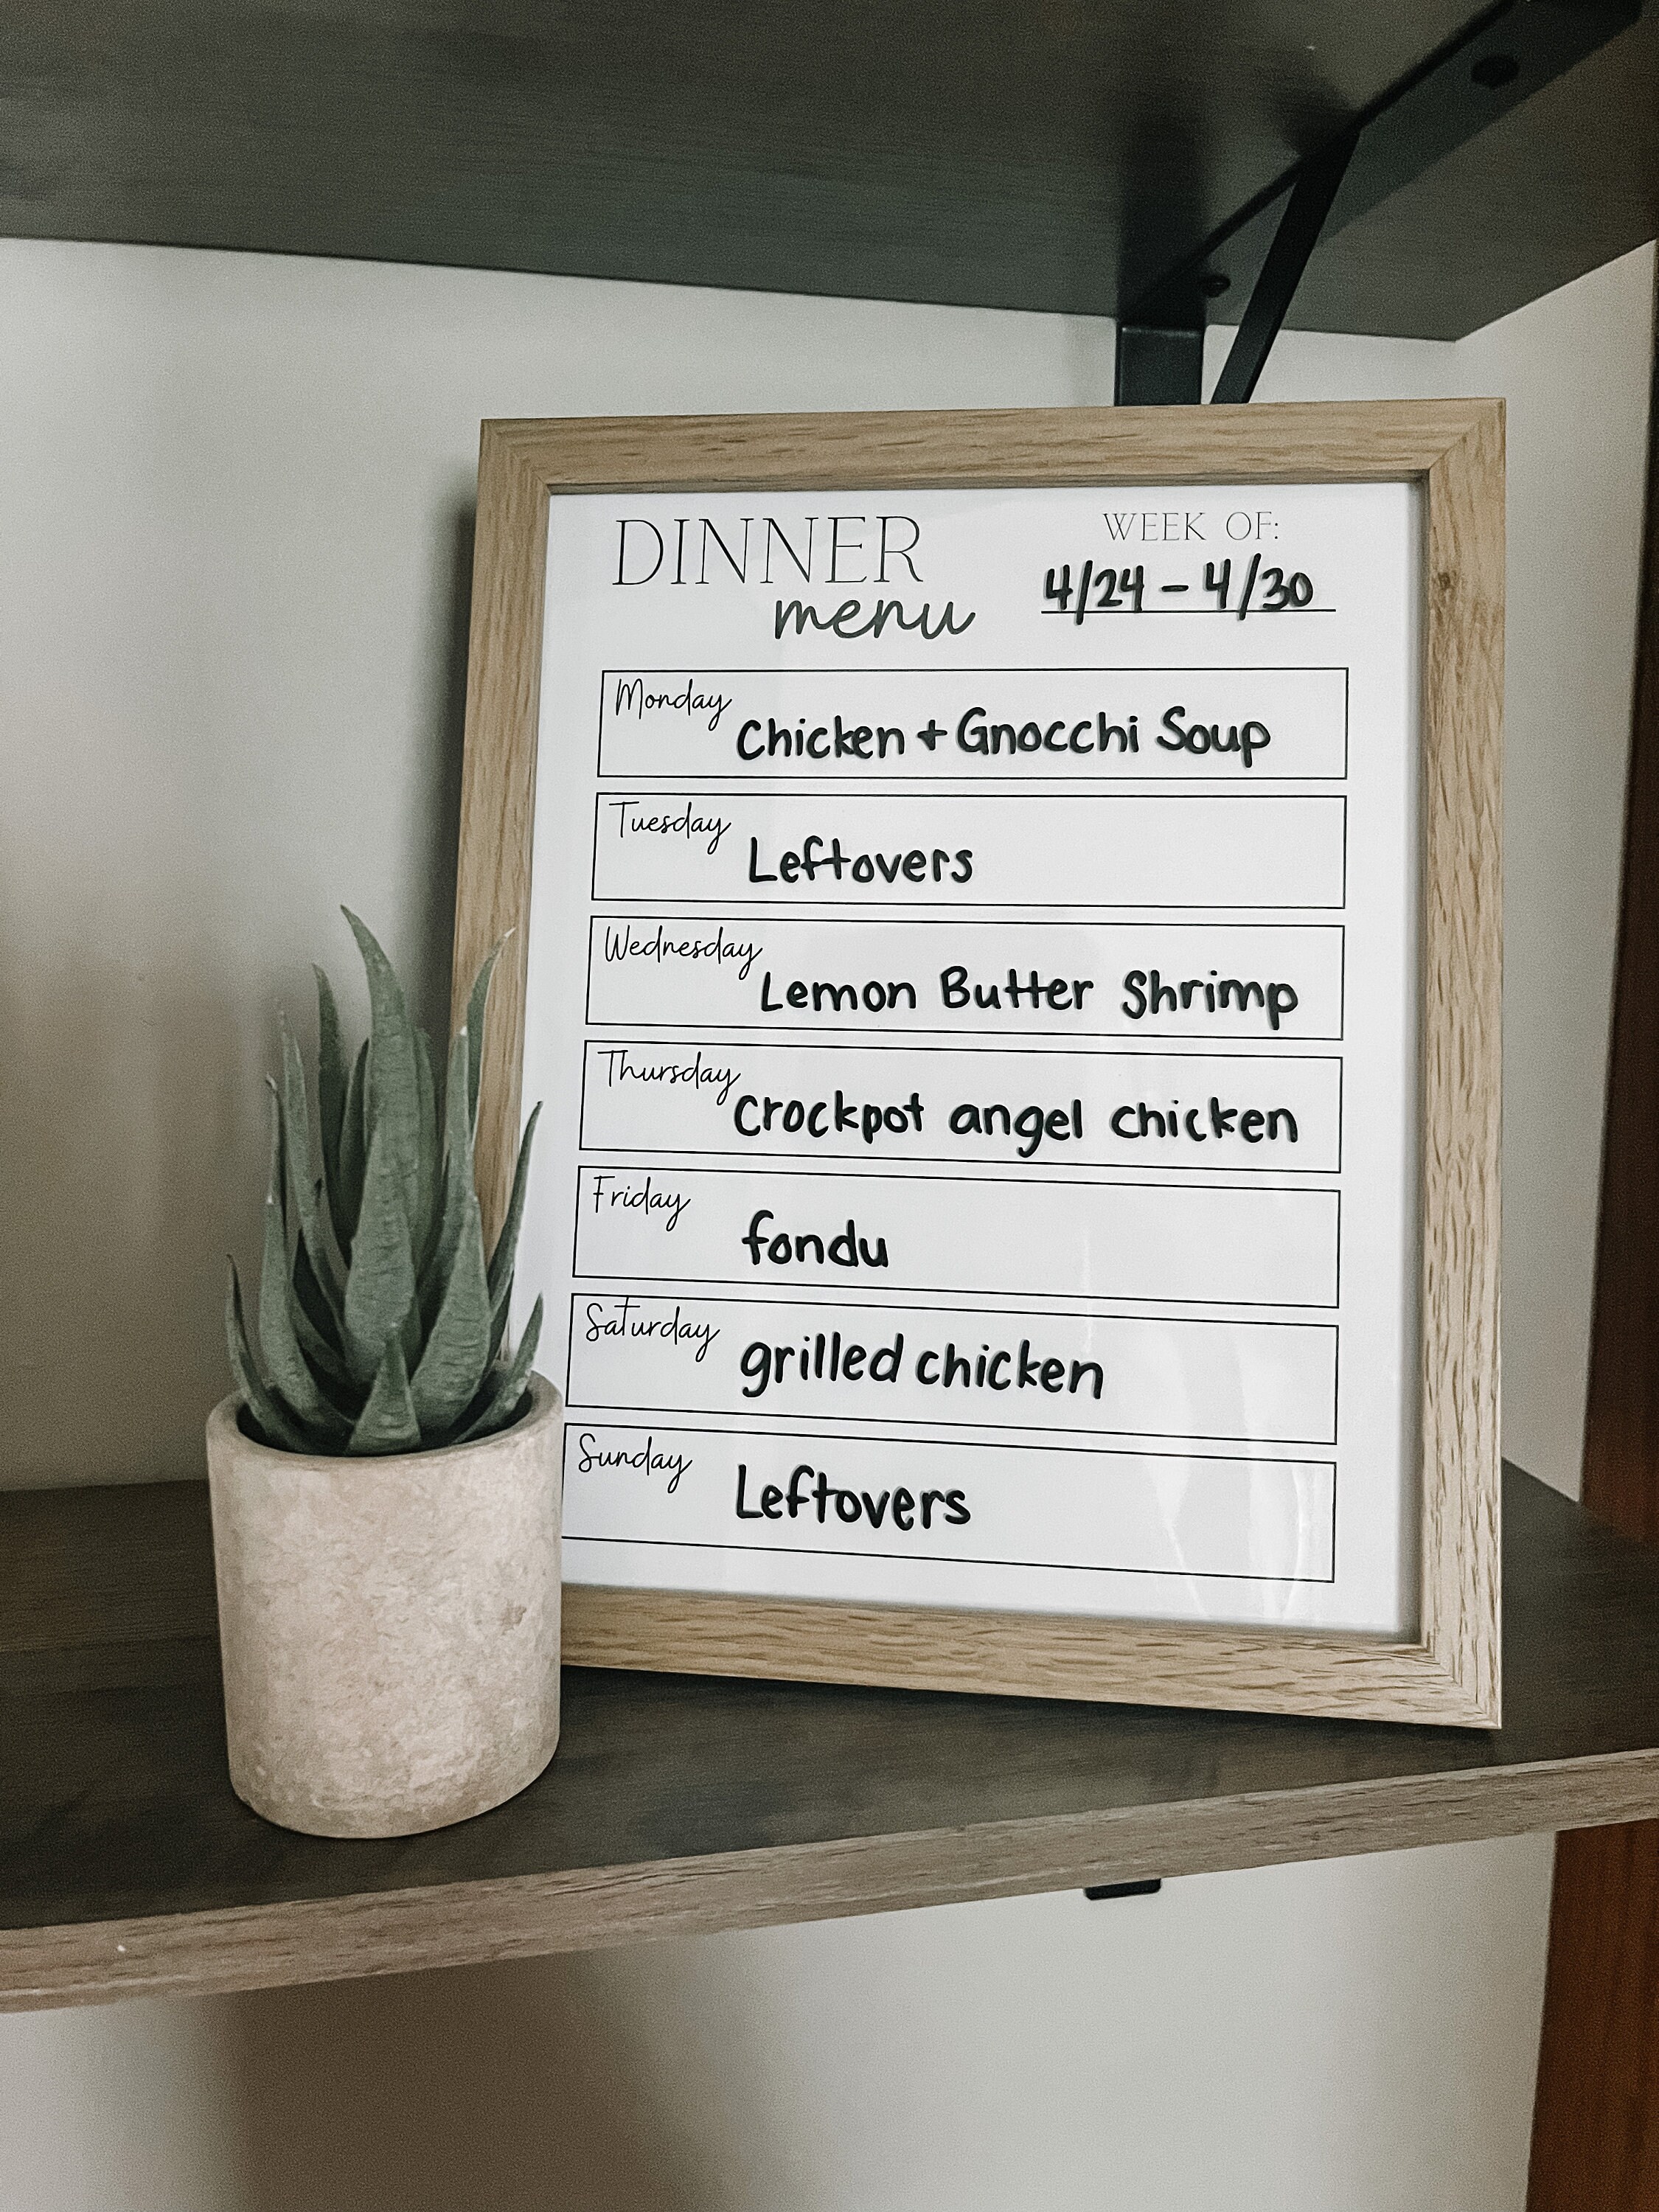 DINNER
menu
WEEK OF:
4/24 - 4/30
Monday
Chicken + Gnocchi Soup
Tuesday
Leftovers
Wednesday
Lemon Butter Shrimp
Thursday
Crockpot angel chicken
Friday
fondu
Saturday
grilled chicken
Sunday
Leftovers